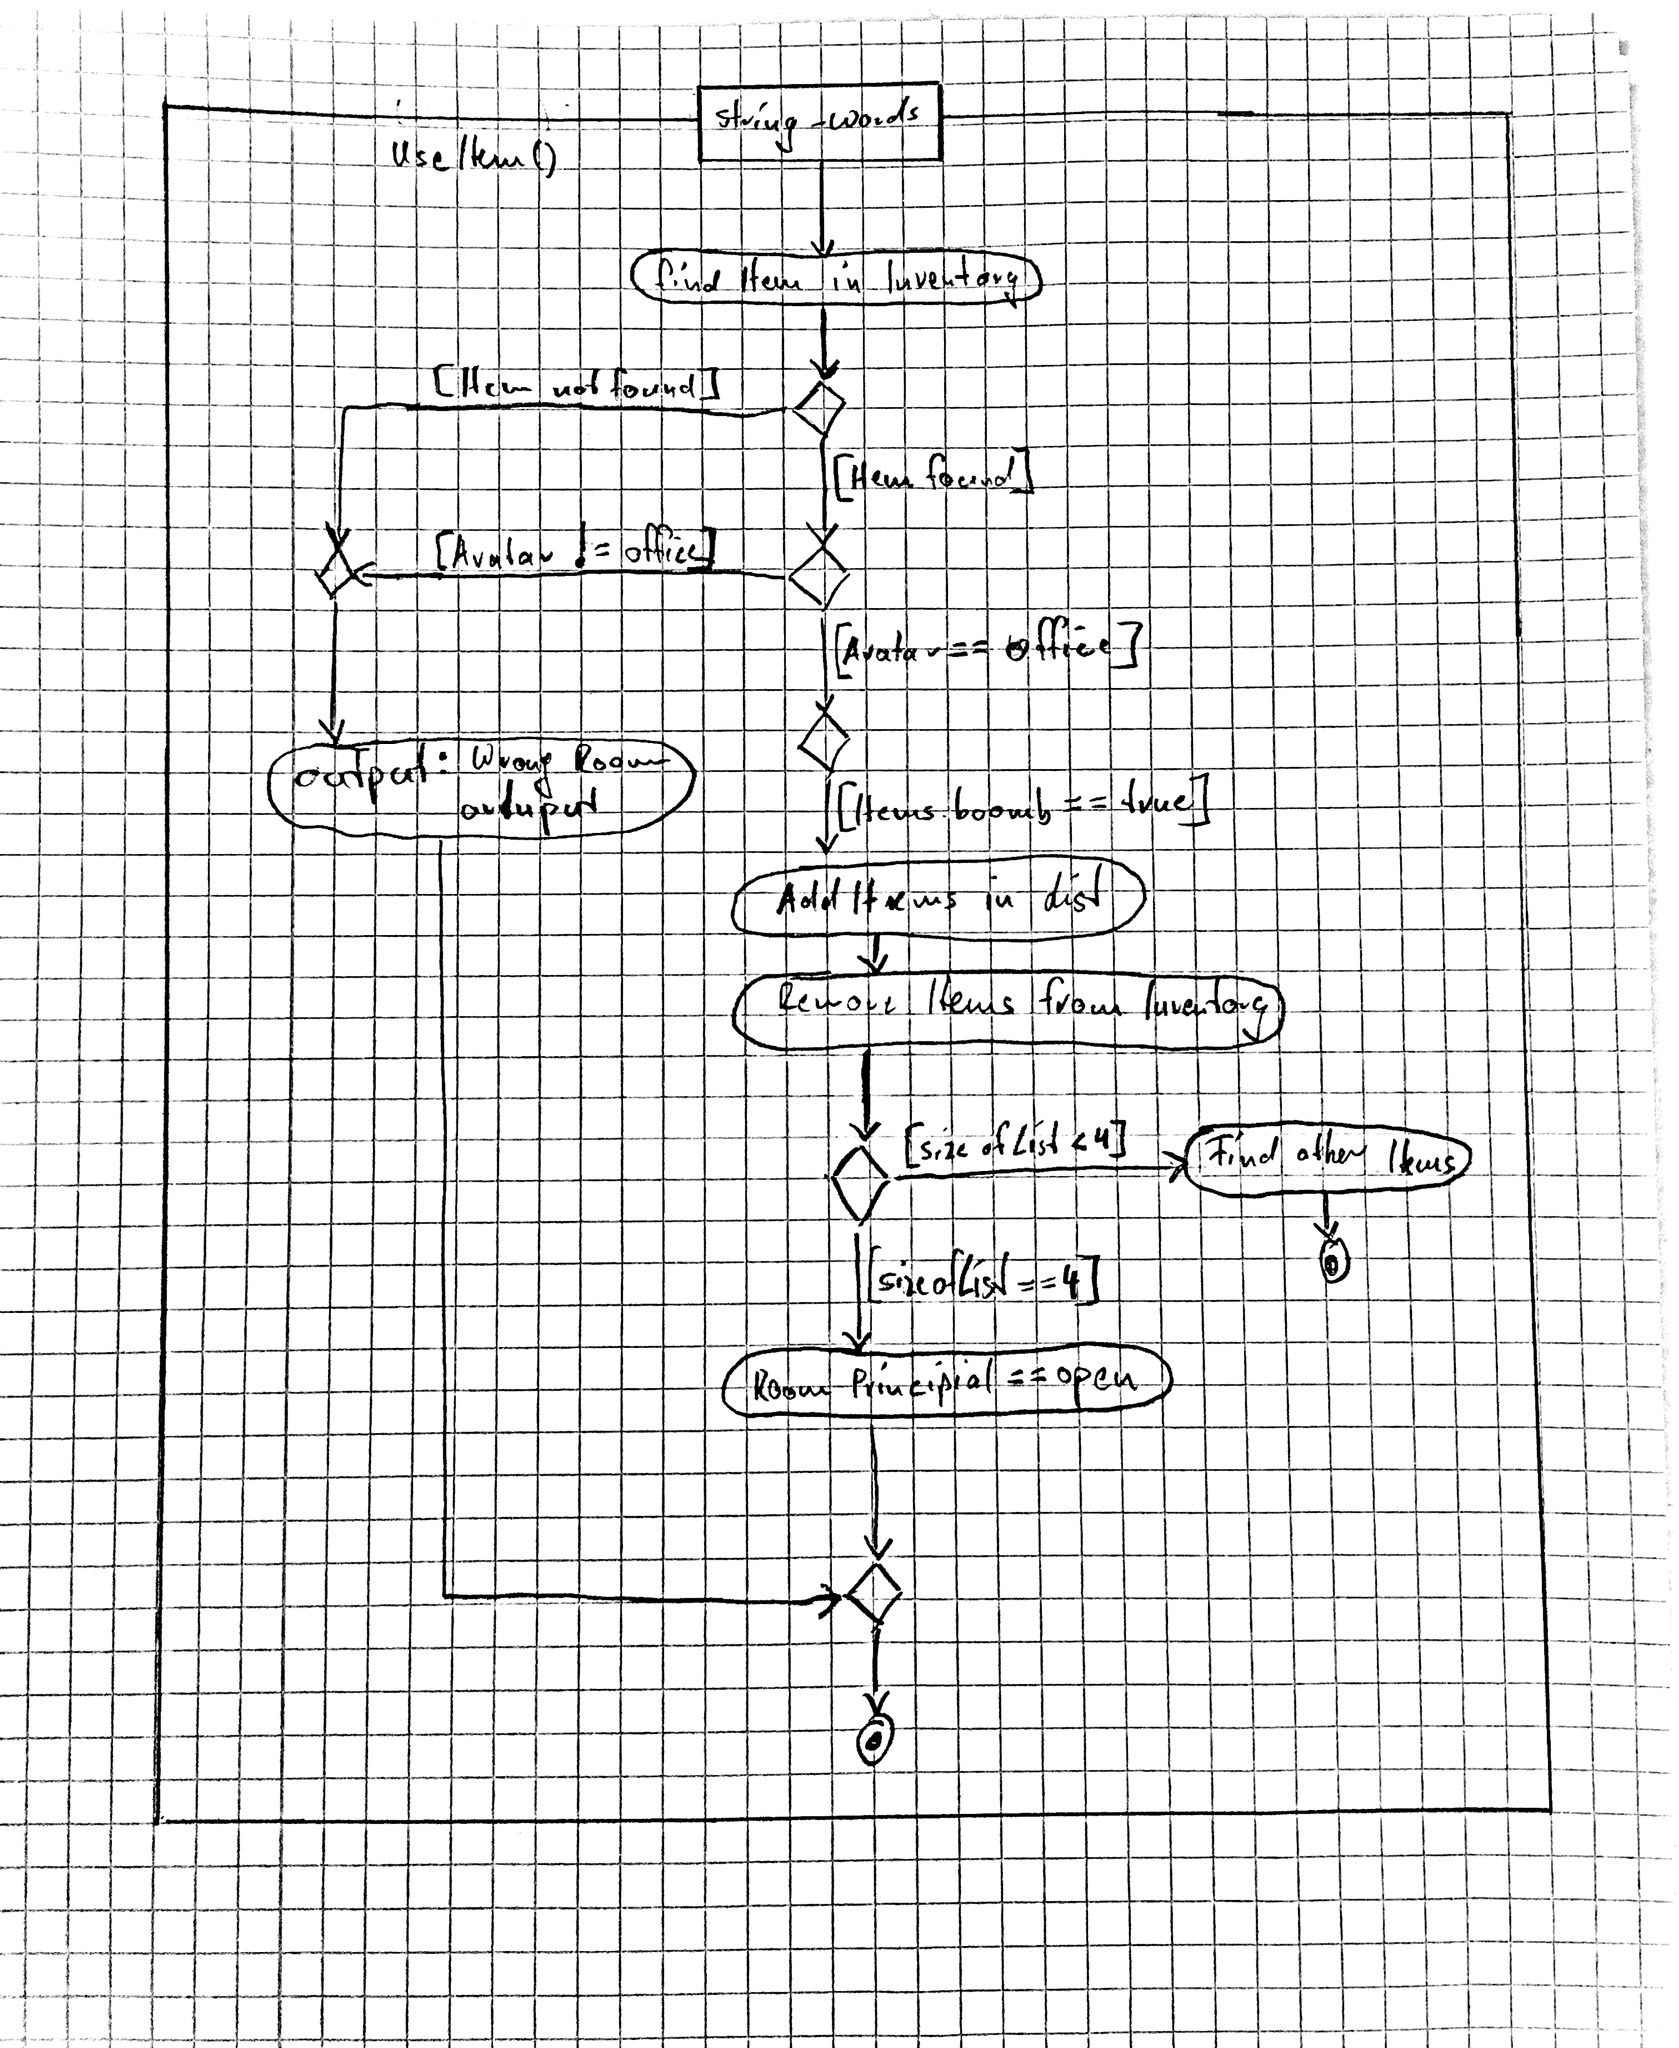 string-words
UseItem()
find Item in Inventory
[Item not found]
[Item found]
[Avatar != office]
[Avatar == office]
output: Wrong Room
outuput
[Items.boomb == true]
Add Items in List
Remove Items from Inventory
[size of List < 4]
Find other Items
[sizeofList == 4]
Room Principial == open